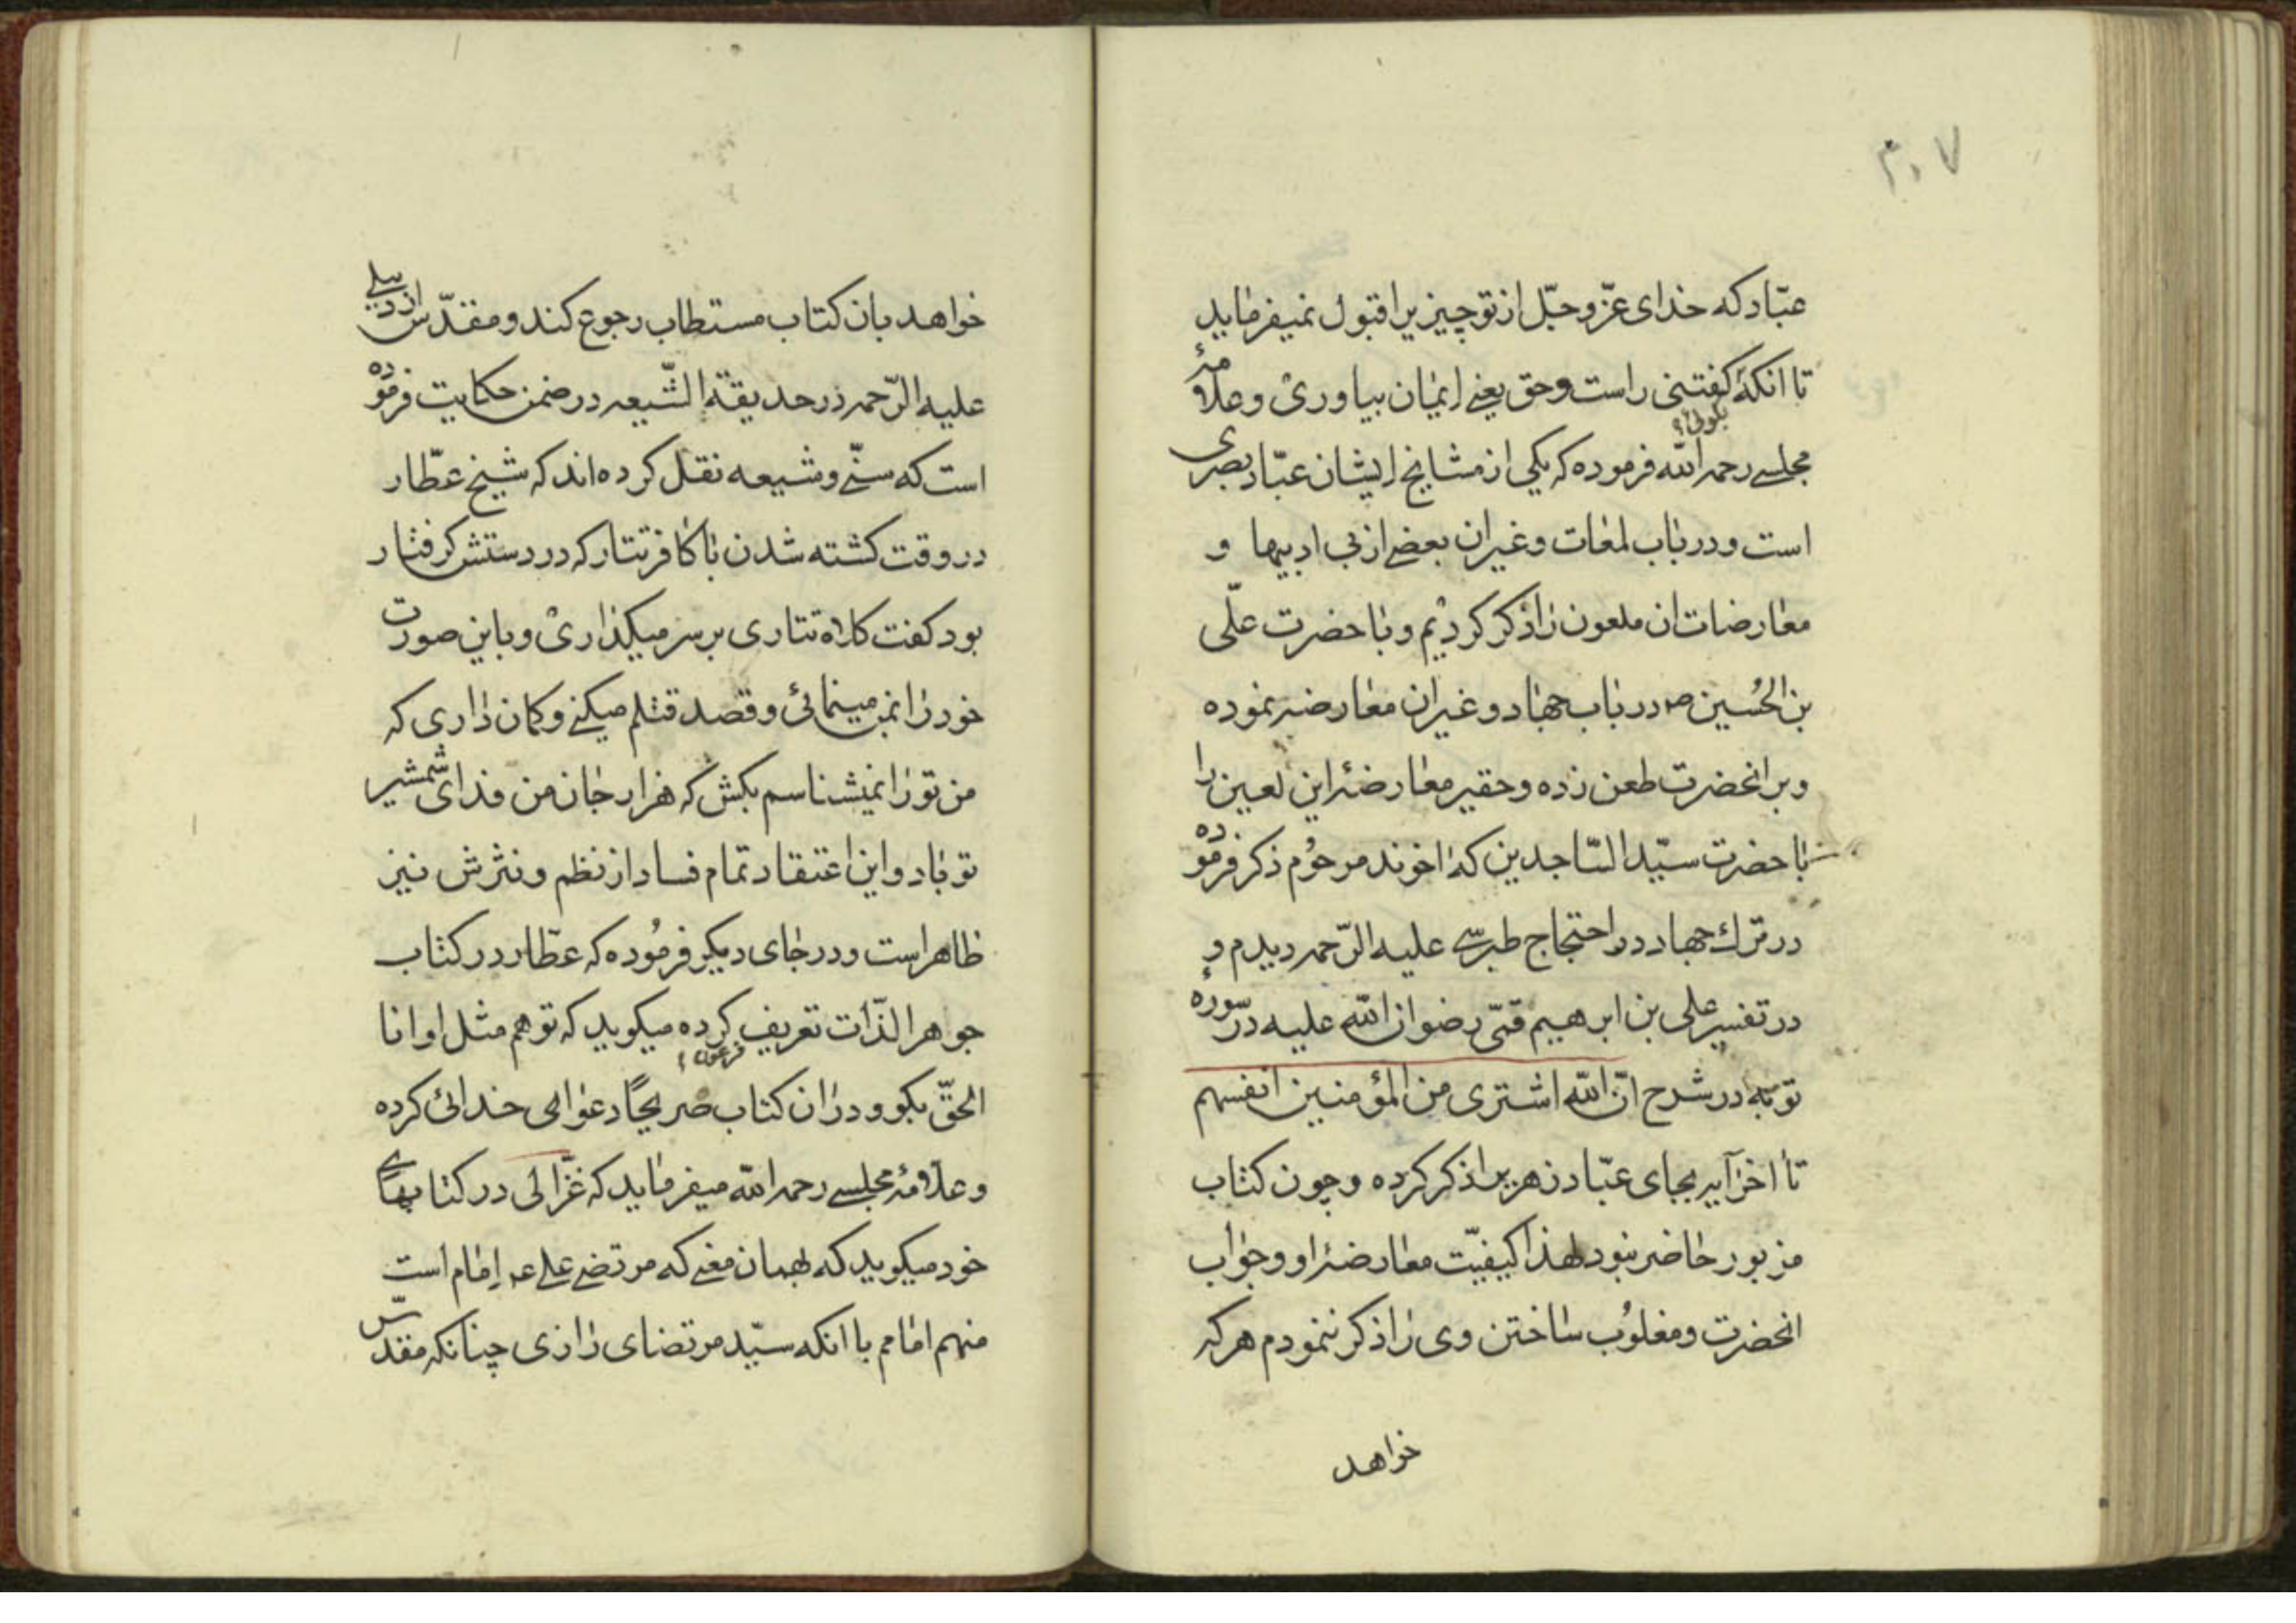 ۳۰۷
عبّاد که خدای عزّ و جلّ از تو چیزی را قبول نمیفرماید
تا انکه گفتنی راست و حق یعنی ایمان بیاوری و علامهٔ
بگوئی؟
مجلسی رحمه الله فرموده که یکی از مشایخ ایشان عبّاد بصری
است و در باب لمعات و غیر ان بعضی از بی ادبیها و
معارضات ان ملعون را ذکر کردیم و با حضرت علّی
بن الحُسین ص در باب جهاد و غیر ان معارضه نموده
و بر انحضرت طعن زده و حقیر معارضهٔ این لعین را
با حضرت سیّد السّاجدین که اخوند مرحُوم ذکر فرموده
در ترك جهاد در احتجاج طبرسی علیه الرّحمه دیدم و
در تفسیر علی بن ابرهیم قمّی رضوان الله علیه در سورهٔ
توبه در شرح انّ الله اشتری من المؤمنین انفسهم
تا اخر آیه بجای عبّاد زهری را ذکر کرده و چون کتاب
مزبور حاضر نبود لهذا کیفیّت معارضهٔ او و جواب
انحضرت و مغلوُب ساختن وی را ذکر ننمودم هر که
خواهد
خواهد بان کتاب مستطاب رجوع کند و مقدّس اردبیلی
علیه الرّحمه در حدیقة الشّیعه در ضمن حکایت فرموده
است که سنّی و شیعه نقل کرده‌اند که شیخ عطّار
در وقت کشته شدن با کافر تتار که در دستش کرفتار
بود کفت کلاه تتاری بر سر میکذاری و باین صورت
خود را بمن مینمائی و قصد قتلم میکنی و کمان داری که
من تو را نمیشناسم بکش که هزار جان من فدای شمشیر
تو باد و این اعتقاد تمام فساد از نظم و نثرش نیز
ظاهر است و در جای دیکر فرمُوده که عطّار در کتاب
جوهر الذّات تعریف کرده میکوید که تو هم مثل او انا
فرعون؟
الحقّ بکو و در ان کتاب صریحًا دعوای خدائی کرده
و علّامهٔ مجلسی رحمه الله میفرماید که غزّالی در کتابهای
خود میکوید که بهمان معنی که مرتضی علی ع امام است
منهم امامم با انکه سیّد مرتضای رازی چنانکه مقدّس